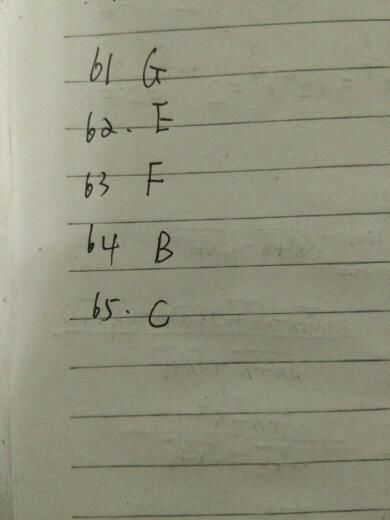 61 G
62. E
63 F
64 B
65. C